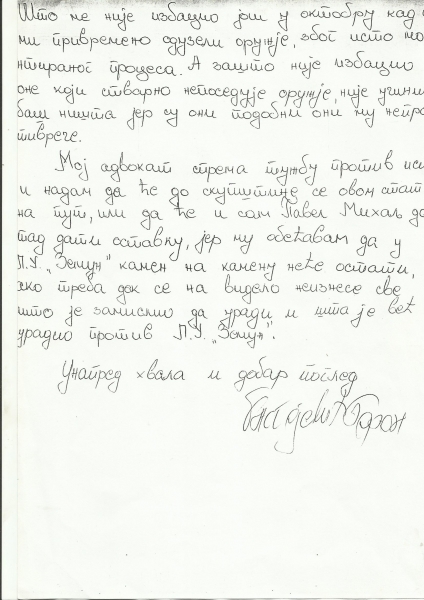 Што ме није избацио још у октобру кад
ми привремено одузели оружје, због исто мо
нтираног процеса. А зашто није избацио
оне који стварно непоседује оружје, није учини
баш ништа јер су они подобни они му непро
тивречe.
Мој адвокат спрема тужбу против ис
и надам да ће до скупштине се овом стат
на пут, или да ће и сам Павел Михаљ да
тад дати оставку, јер му обећавам да у
Л.У. „Земун" камен на камену неће остати,
ако треба док се на видело неизнесе све
што је замислио да уради и шта је већ
урадио против Л.У. „Земун".
Унапред хвала и добар поглед